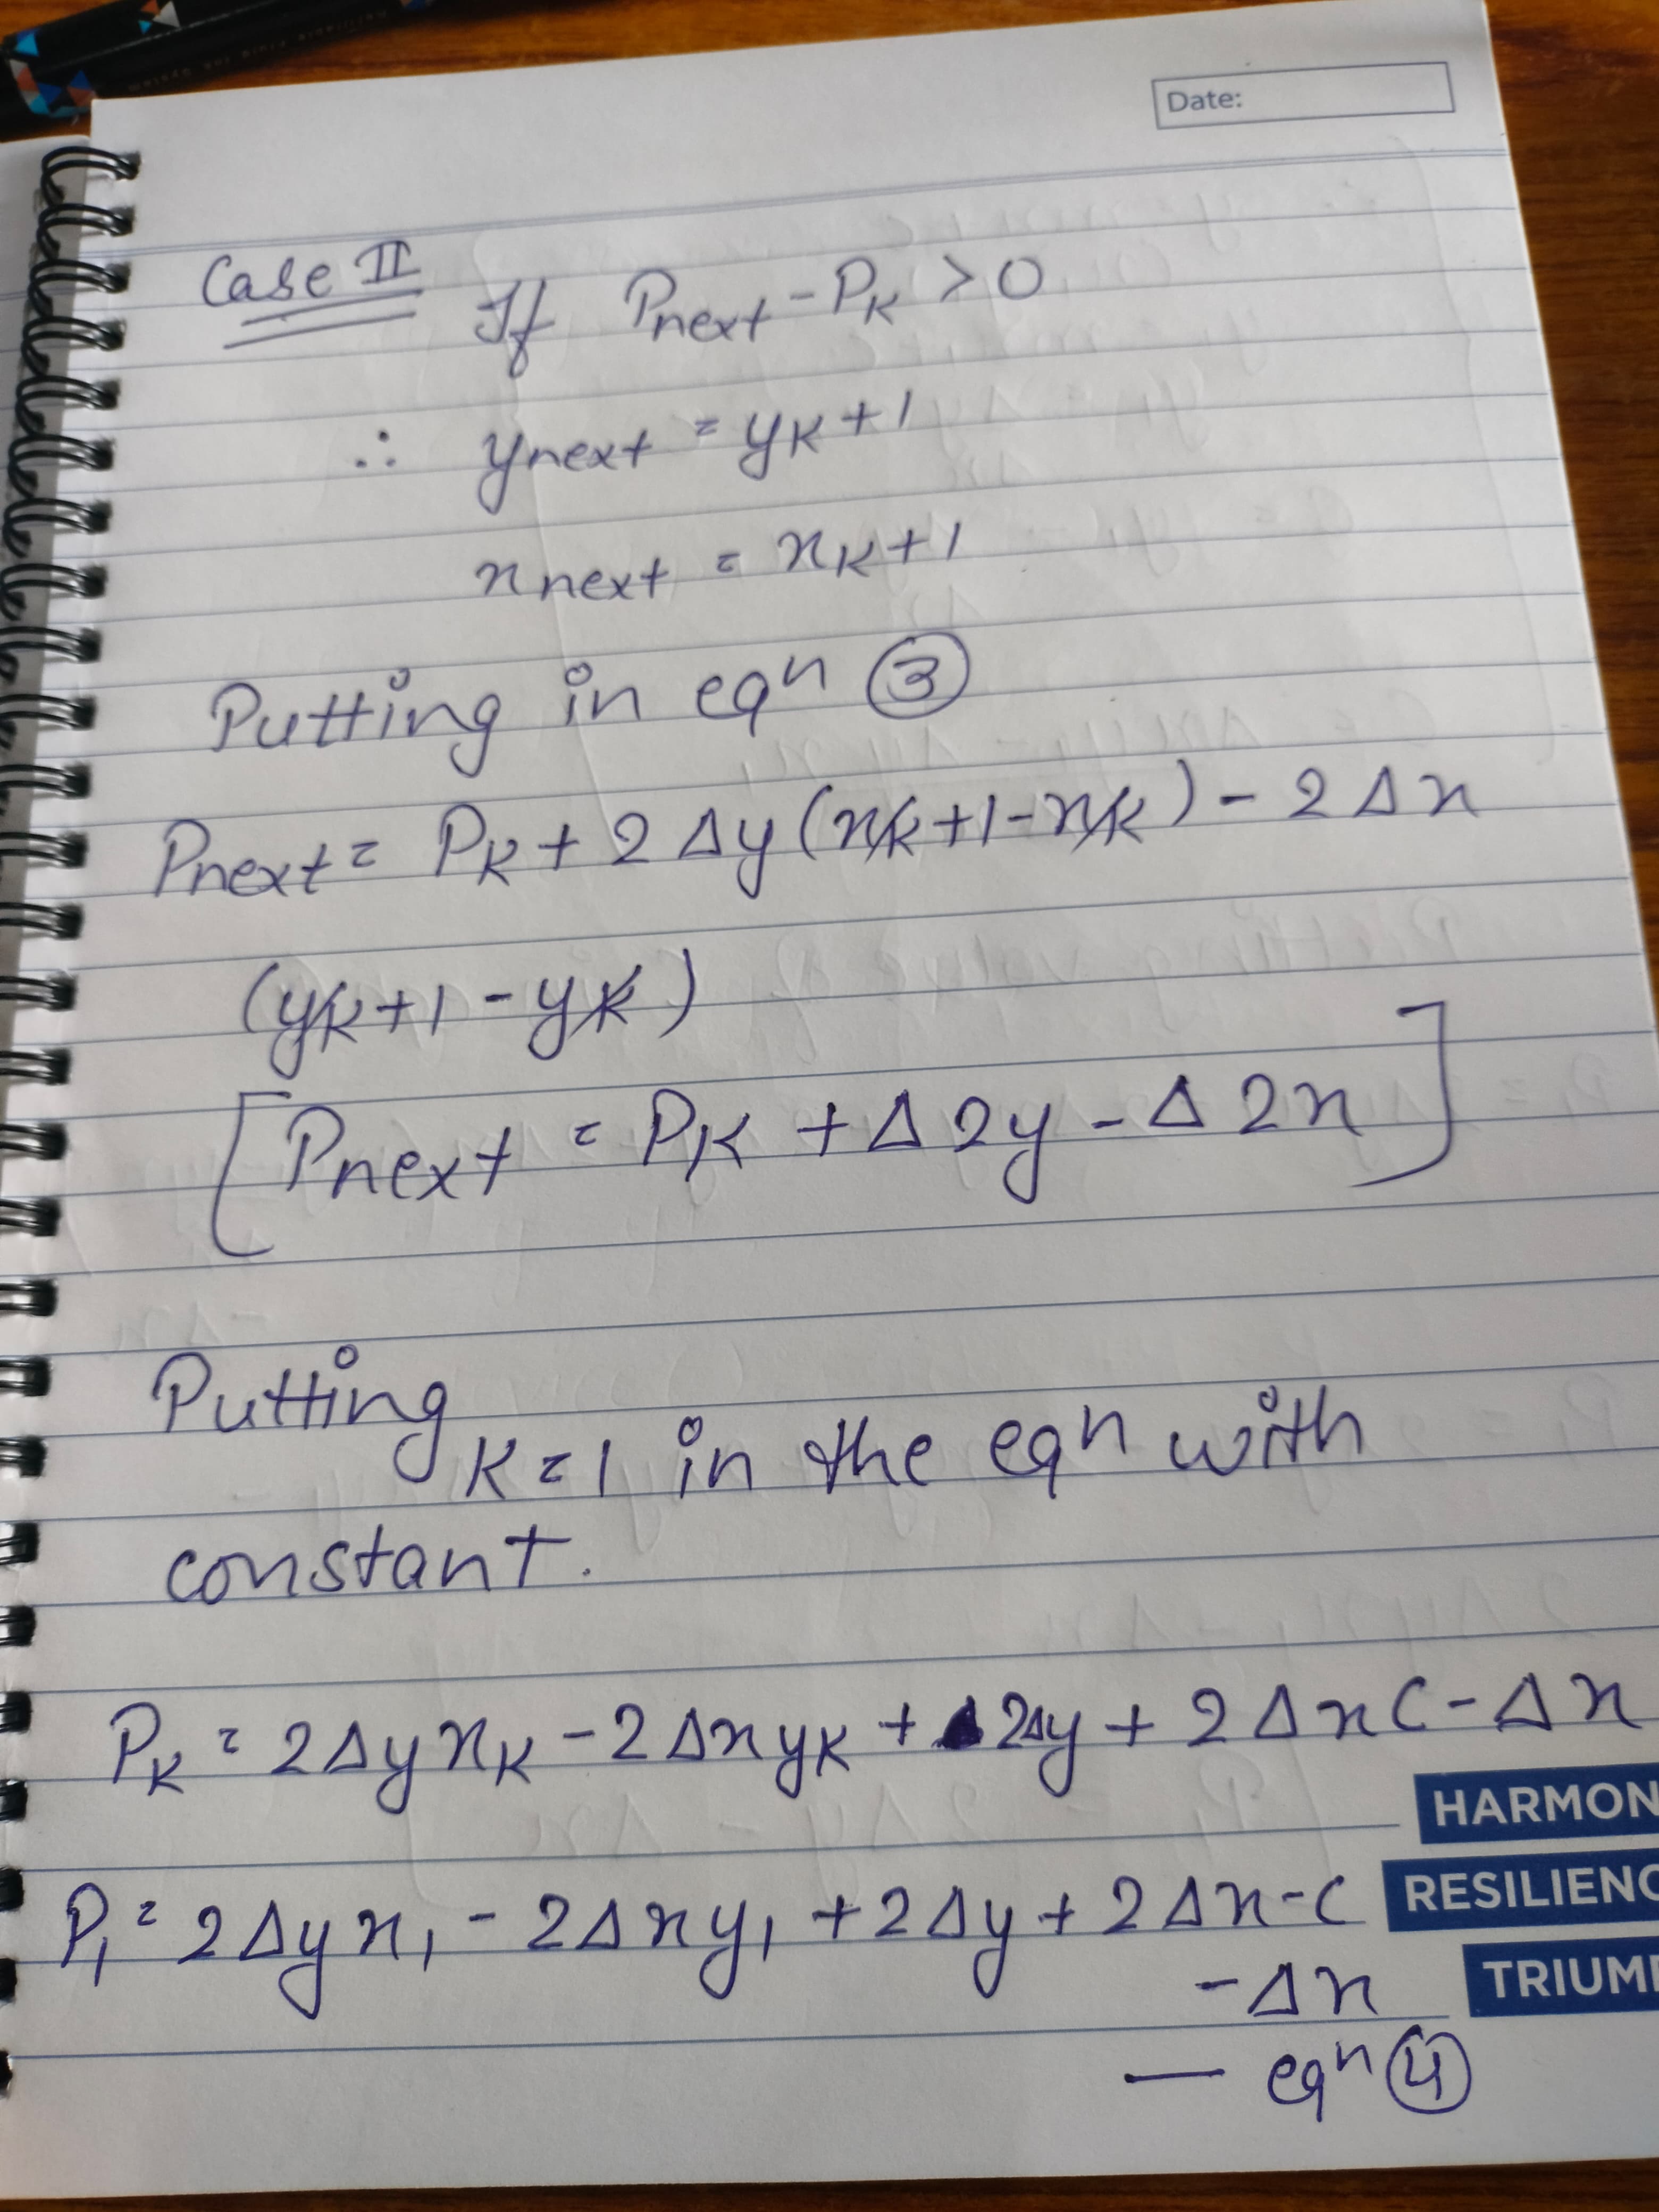 Date:
Case II If Pnext - PK > 0
∴ ynext = yK+1
xnext = xK+1
Putting in eqn ③
Pnext = PK + 2Δy(xK+1-xK) - 2Δx
(yK+1-yK)
[Pnext = PK + Δ2y - Δ2x]
Putting
K=1 in the eqn with
constant.
PK = 2ΔyxK - 2ΔxyK + 2Δy + 2ΔxC - Δx
HARMON
P1 = 2Δyx1 - 2Δxy1 + 2Δy + 2Δx-C
RESILIENC
-Δx
TRIUM
— eqn ④